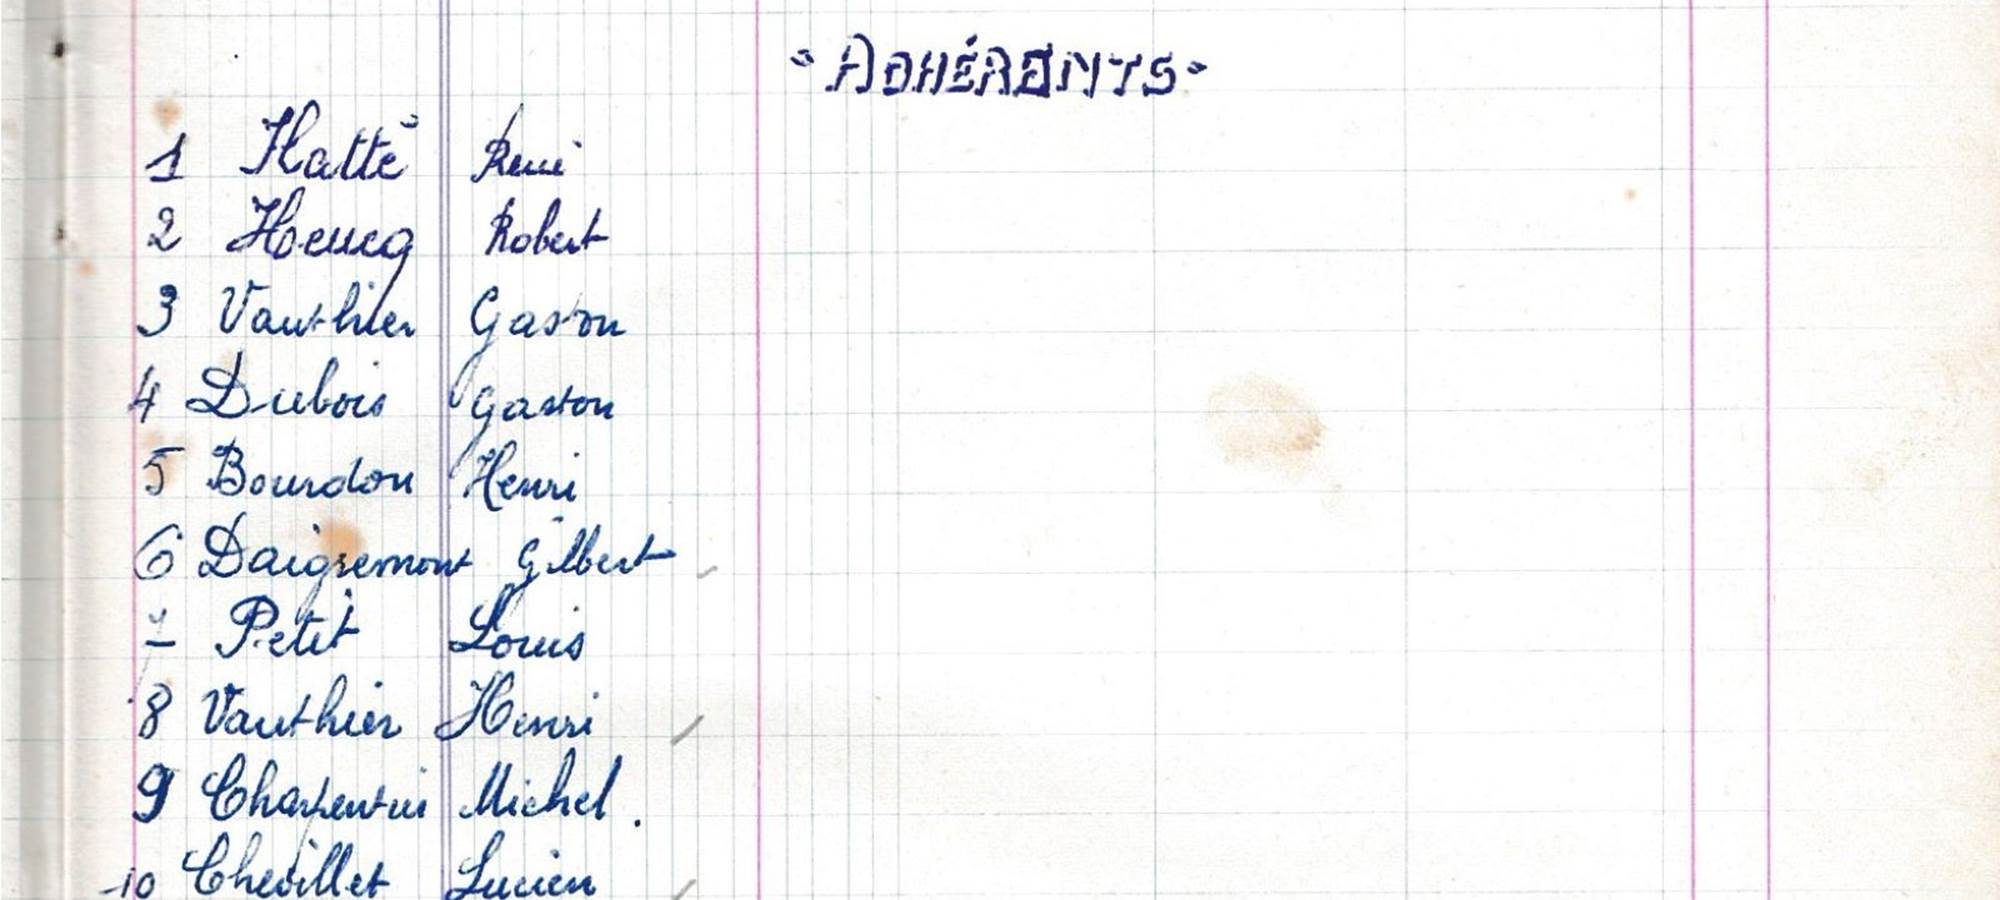 "ADHÉRENTS"
1 Hatté René
2 Hoeucq Robert
3 Vauthier Gaston
4 Dubois Gaston
5 Bourdon Henri
6 Daigremont Gilbert
7 Petit Louis
8 Vauthier Henri
9 Charpentier Michel.
10 Chevillet Lucien